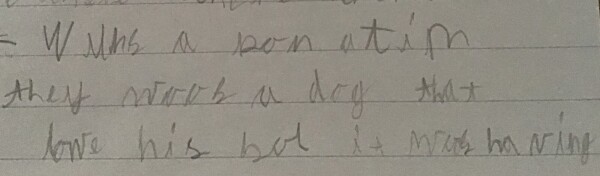 - Wuns a pon a tim
they woos a dog that
love his bot it was having